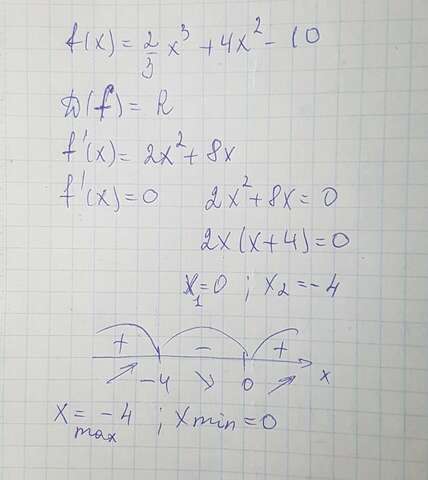 f(x) = 2/3 x³ + 4x² - 10
D(f) = R
f'(x) = 2x² + 8x
f'(x) = 0 2x² + 8x = 0
2x(x+4) = 0
x₁ = 0 ; x₂ = -4
+ - +
↗ -4 ↘ 0 ↗ x
x max = -4 ; x min = 0